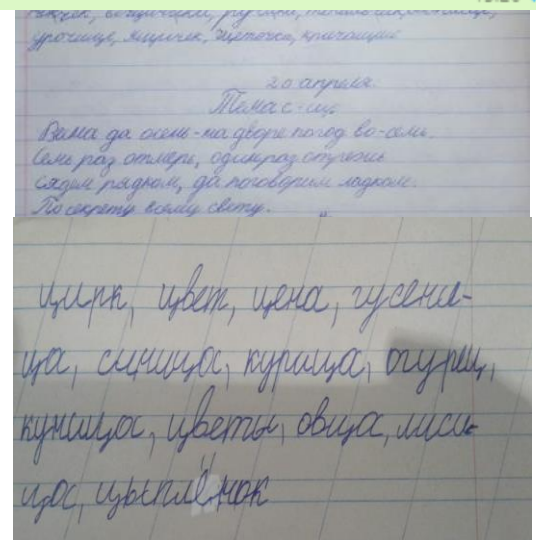 урочище, ящичек, щёточка, кричащий
20 апреля.
Тема с-щ.
Весна да осень-на дворе погод во-семь.
Семь раз отмерь, один раз отрежь
сядем рядком, да поговорим ладком.
По секрету всему свету.
цирк, цвет, цена, гусени-
ца, синица, курица, огурец,
куница, цветы, овца, лиси-
ца, цыплёнок